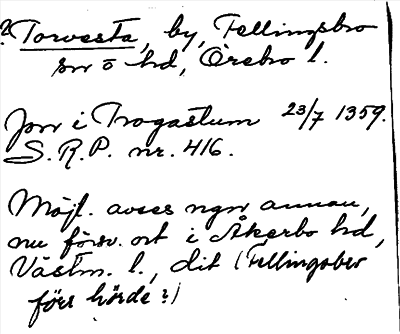 ? Torvesta, by, Fellingsbro
sn o hd, Örebro l.
Jon i Trogastum 23/7 1359.
S.R.P. nr. 416.
Möjl. avses ngn annan,
nu försv. ort i Åkerbo hd,
Västm. l., dit (Fellingsbro
förr hörde?)